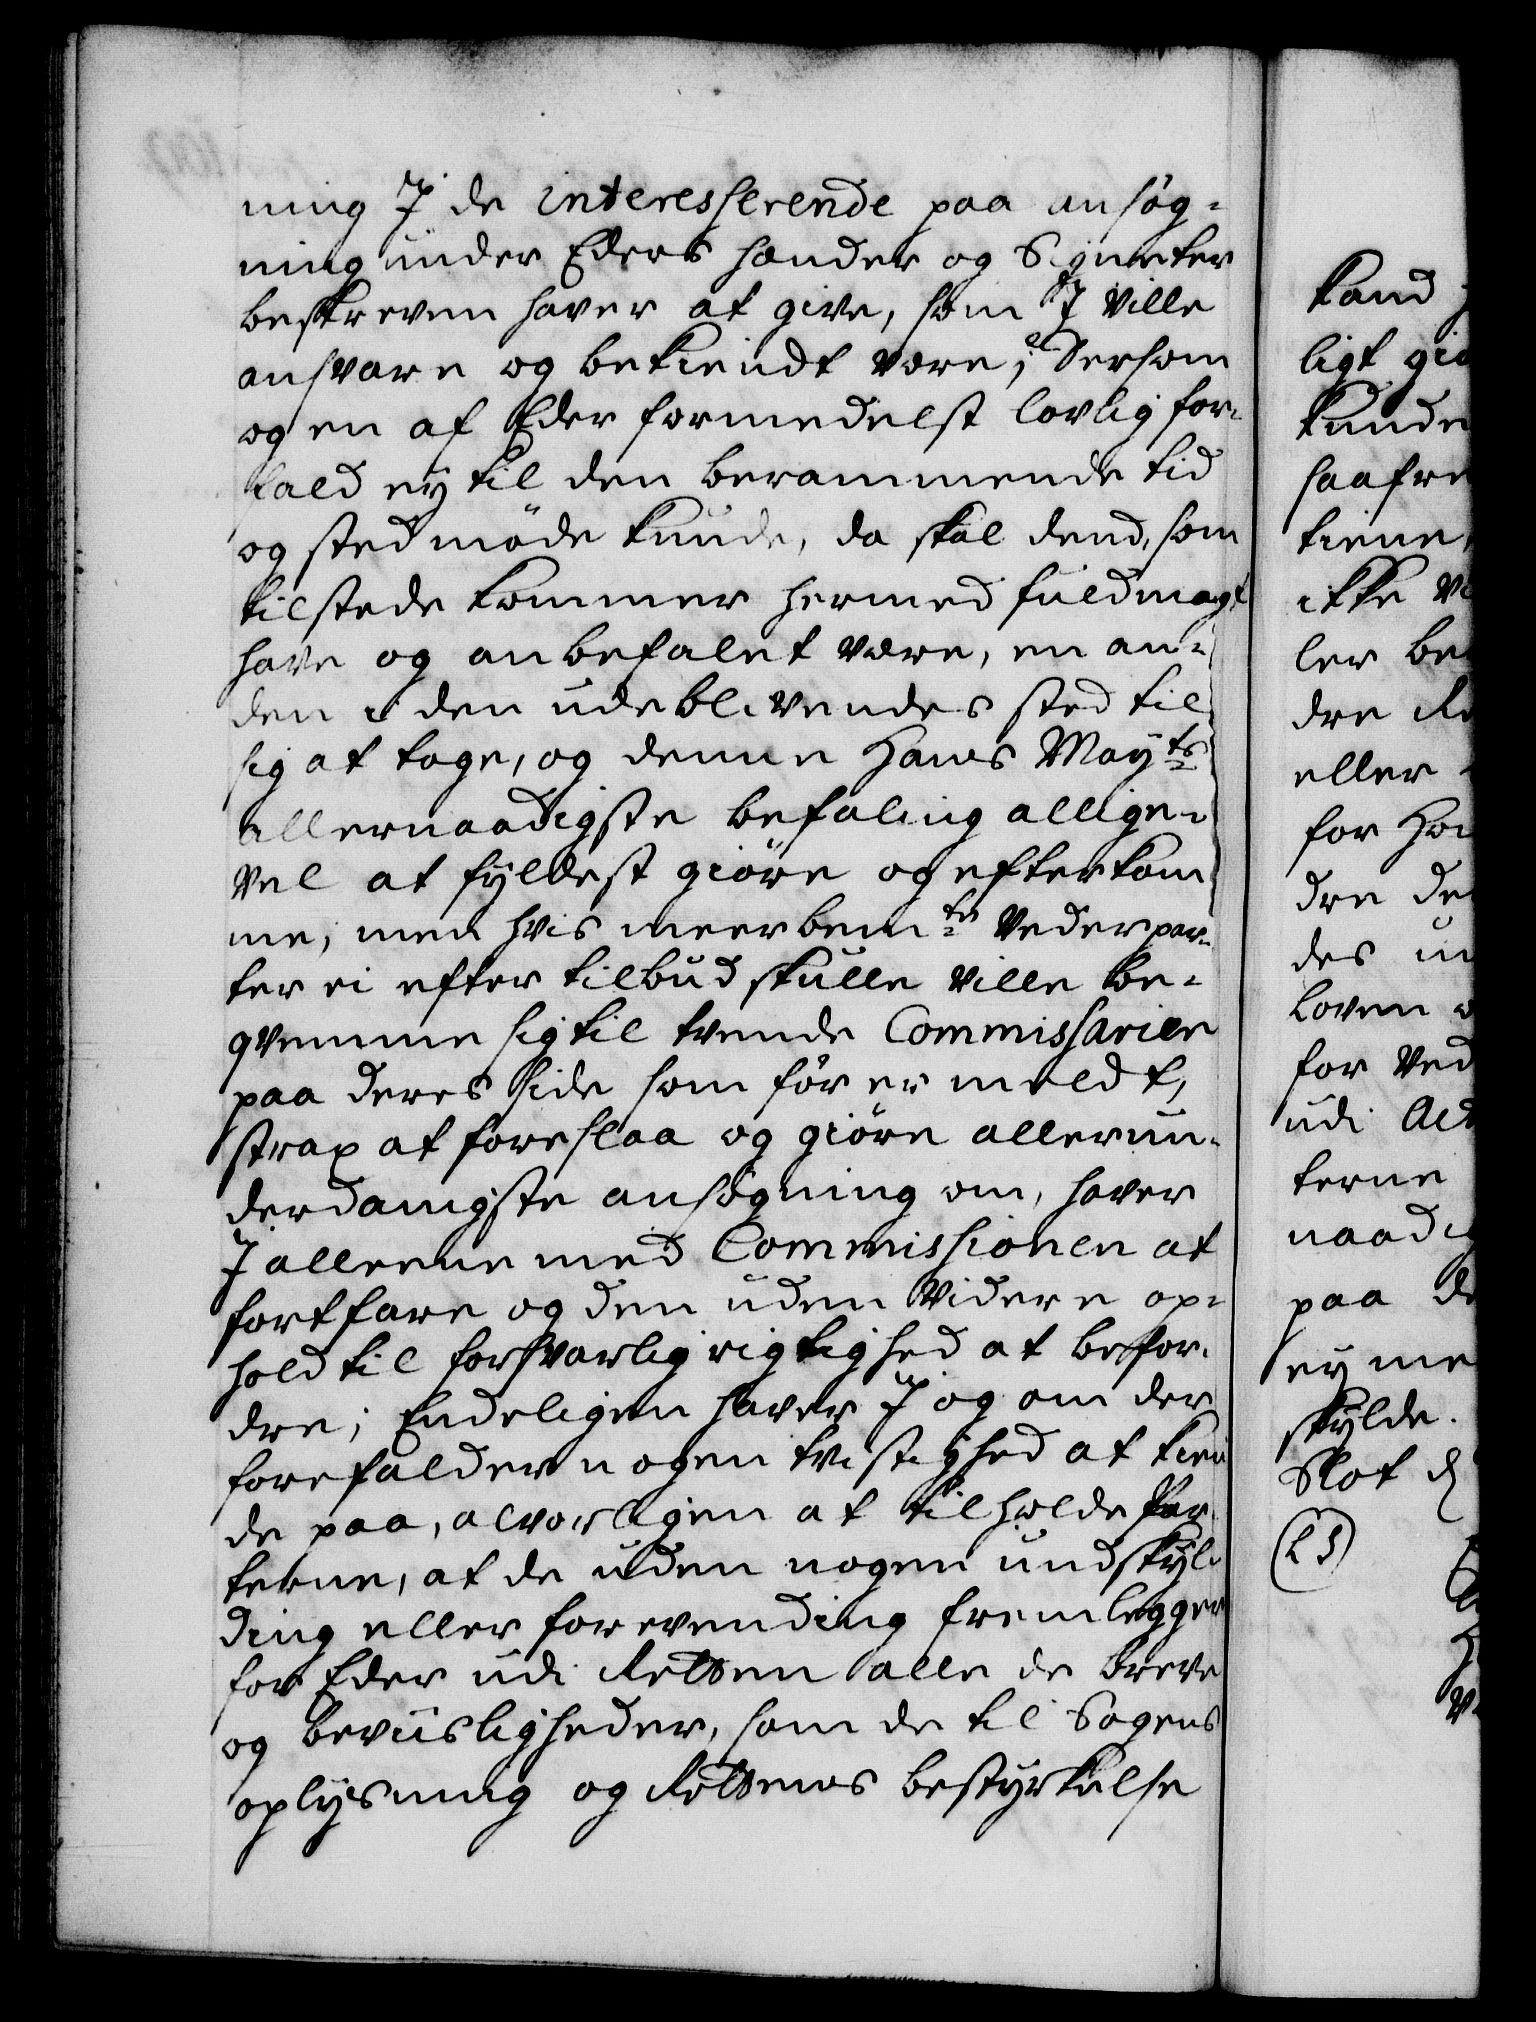 ning I de interesserende paa ansøg-
ning under Eders hænder og Signeter
beskreven haver at give, som I ville
ansvare og bekiendt være; Dersom
og en af Eder formedelst lovlig for-
fald ey til den berammende tid
og sted møde kunde, da skal dend, som
tilstede kommer hermed fuldmagt
have og anbefalet være, en an-
den i den udeblivendes sted til
sig at tage, og denne Hans May:ts
allernaadigste befaling allige-
vel at fyldest giøre og efterkom
me, men hvis meerbem:te Vederpar-
ter ei efter tilbud skulle ville be-
qvemme sig til tvende Commissarier
paa deres side som før er meldt,
strax at foreslaa og giøre allerun-
derdanigste ansøgning om, haver
I alleene med Commissionen at
fortfare og den uden videre op-
hold til forsvarlig rigtighed at befor-
dre; Endeligen haver I og om der
forefalder nogen tvistighed at kien
de paa, alvorligen at tilholde Par-
terne, at de uden nogen undskyl-
ding eller forevending fremlegger
for Eder udi Retten alle de breve
og beviisligheder, som de til Sagens
oplysning og Rettens bestyrkelse
kand
ligt giø
kunde
saafre
tiene
ikke
ler be
dre
eller
for
dre de
des
Loven
for Ved
udi
terne
naadig
paa
ey me
skylde.
Slot d
(LS)